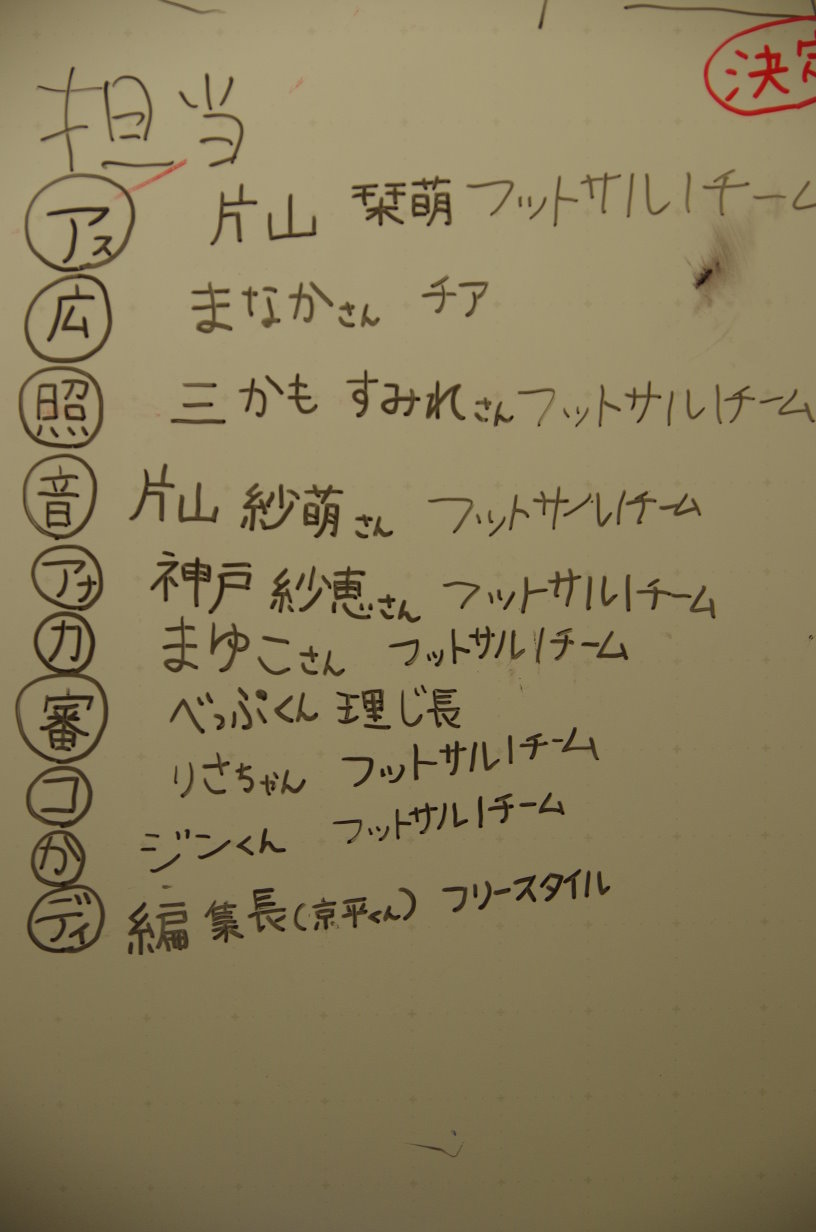 決定
担当
アス 片山 栞萌 フットサル1チーム
広 まなかさん チア
照 三かも すみれさん フットサル1チーム
音 片山 紗萌さん フットサル1チーム
アナ 神戸 紗恵さん フットサル1チーム
カ まゆこさん フットサル1チーム
審 べっぷくん 理じ長
コ りさちゃん フットサル1チーム
か ジンくん フットサル1チーム
ディ 編集長(京平くん) フリースタイル